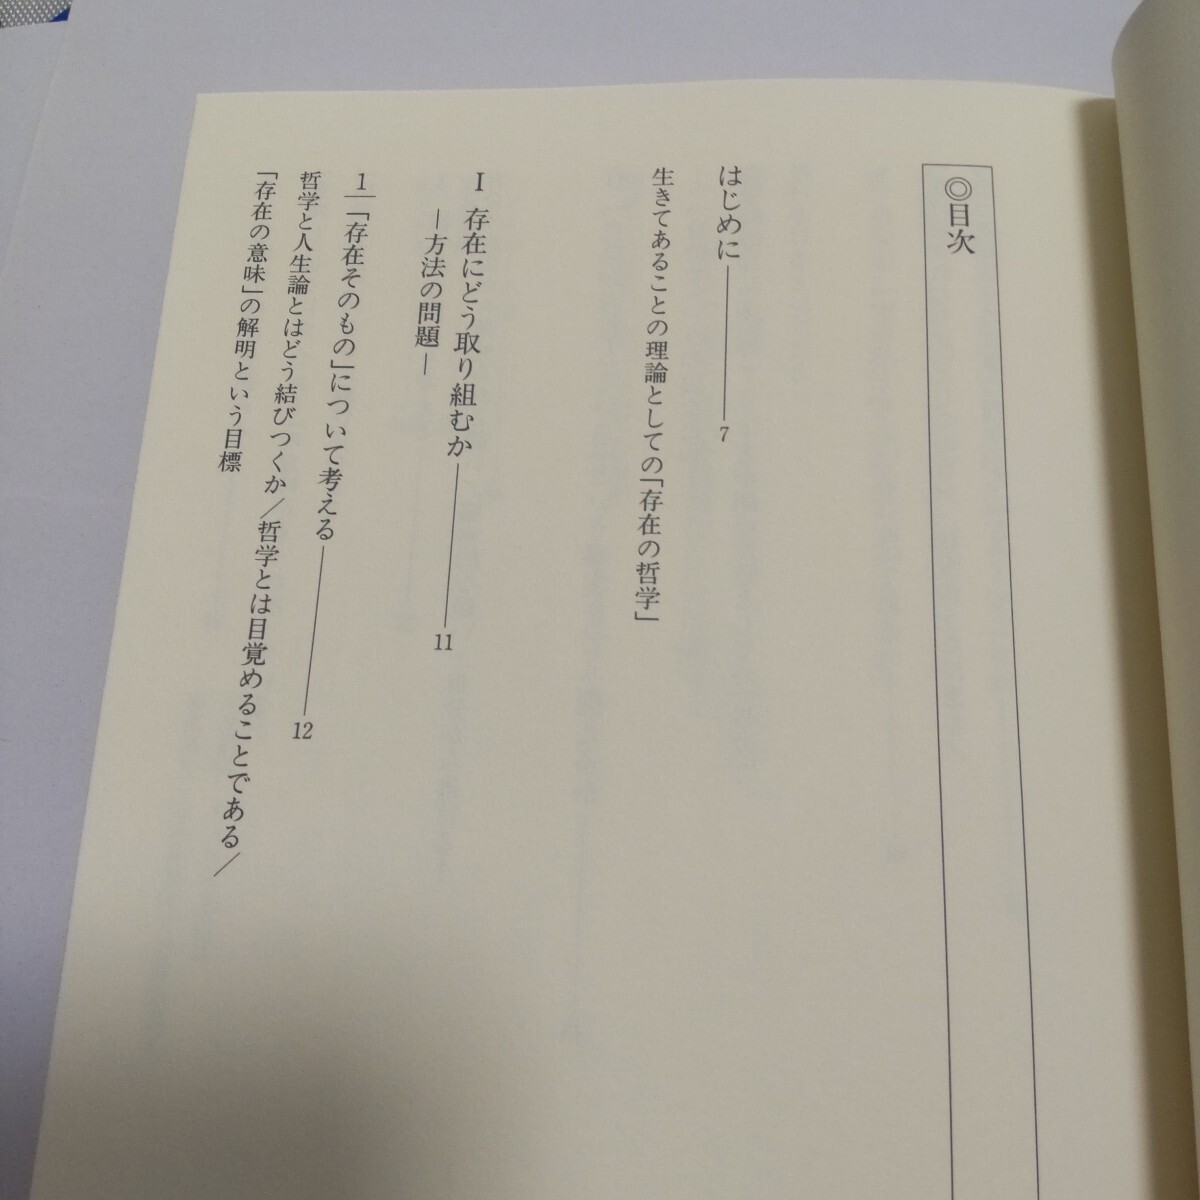 ◎目次
はじめに――7
生きてあることの理論としての「存在の哲学」
I 存在にどう取り組むか――11
―方法の問題―
1 「存在そのもの」について考える――12
哲学と人生論とはどう結びつくか／哲学とは目覚めることである／
「存在の意味」の解明という目標